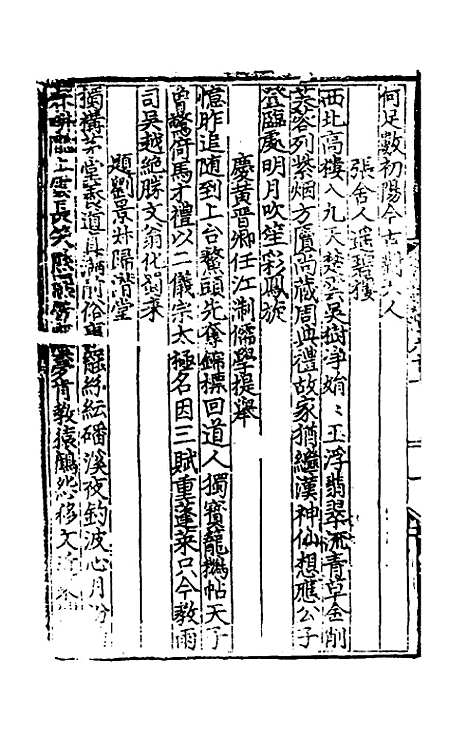 何足數初陽今古對人
張舍人遥碧樓
西北高樓八九天楚雲吳樹淨娟〻玉浮翡翠流青草金削
芙蓉列紫烟方厲尚藏周典禮故家猶繼漢神仙想應公子
登臨處明月吹笙彩鳳旋
慶黄晋卿任江制儒學提舉
憶昨追随到上台鰲頭先奪錦標回道人獨寳籠鵝帖天子
曾驚倚馬才禮以二儀宗太極名因三賦重蓬萊只今教雨
司吳越絶勝文翁化蜀來
題劉景歸潜堂
獨構茅堂養道真俗絲紜磻溪夜釣波心月
上雲長笑肯教猿鶴怨移文